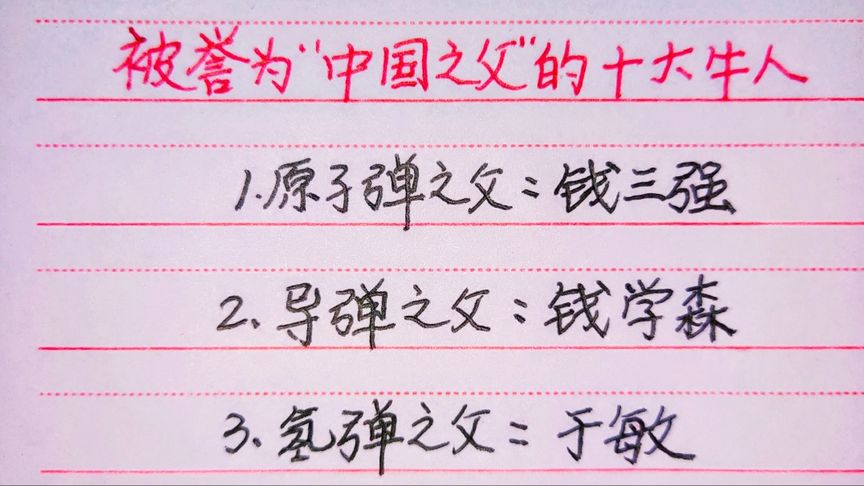 被誉为"中国之父"的十大牛人
1.原子弹之父:钱三强
2.导弹之父:钱学森
3.氢弹之父:于敏